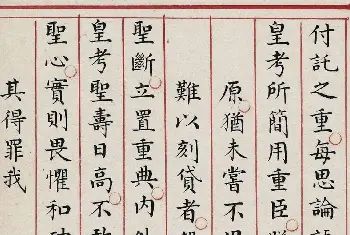 付託之重每思
皇考所簡用重臣
原猶未嘗不
難以刻貸者
聖斷立置重典內
皇考聖壽日高不
聖心實則畏懼和
其得罪我